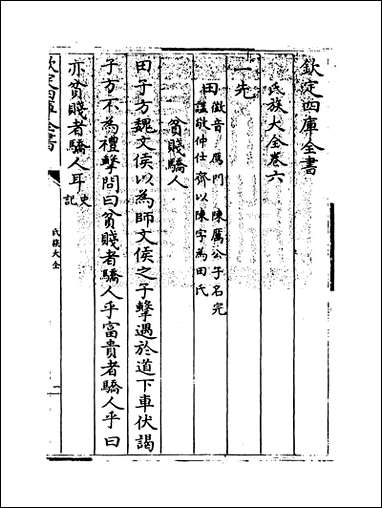 欽定四庫全書
氏族大全卷六
一先
田 徵音 鴈門 陳厲公子名完
諡敬仲仕齊以陳字為田氏
貧賤驕人
田子方魏文侯以為師文侯之子擊遇於道下車伏謁
子方不為禮擊問曰貧賤者驕人乎富貴者驕人乎曰
亦貧賤者驕人耳史記
欽定四庫全書
氏族大全
一